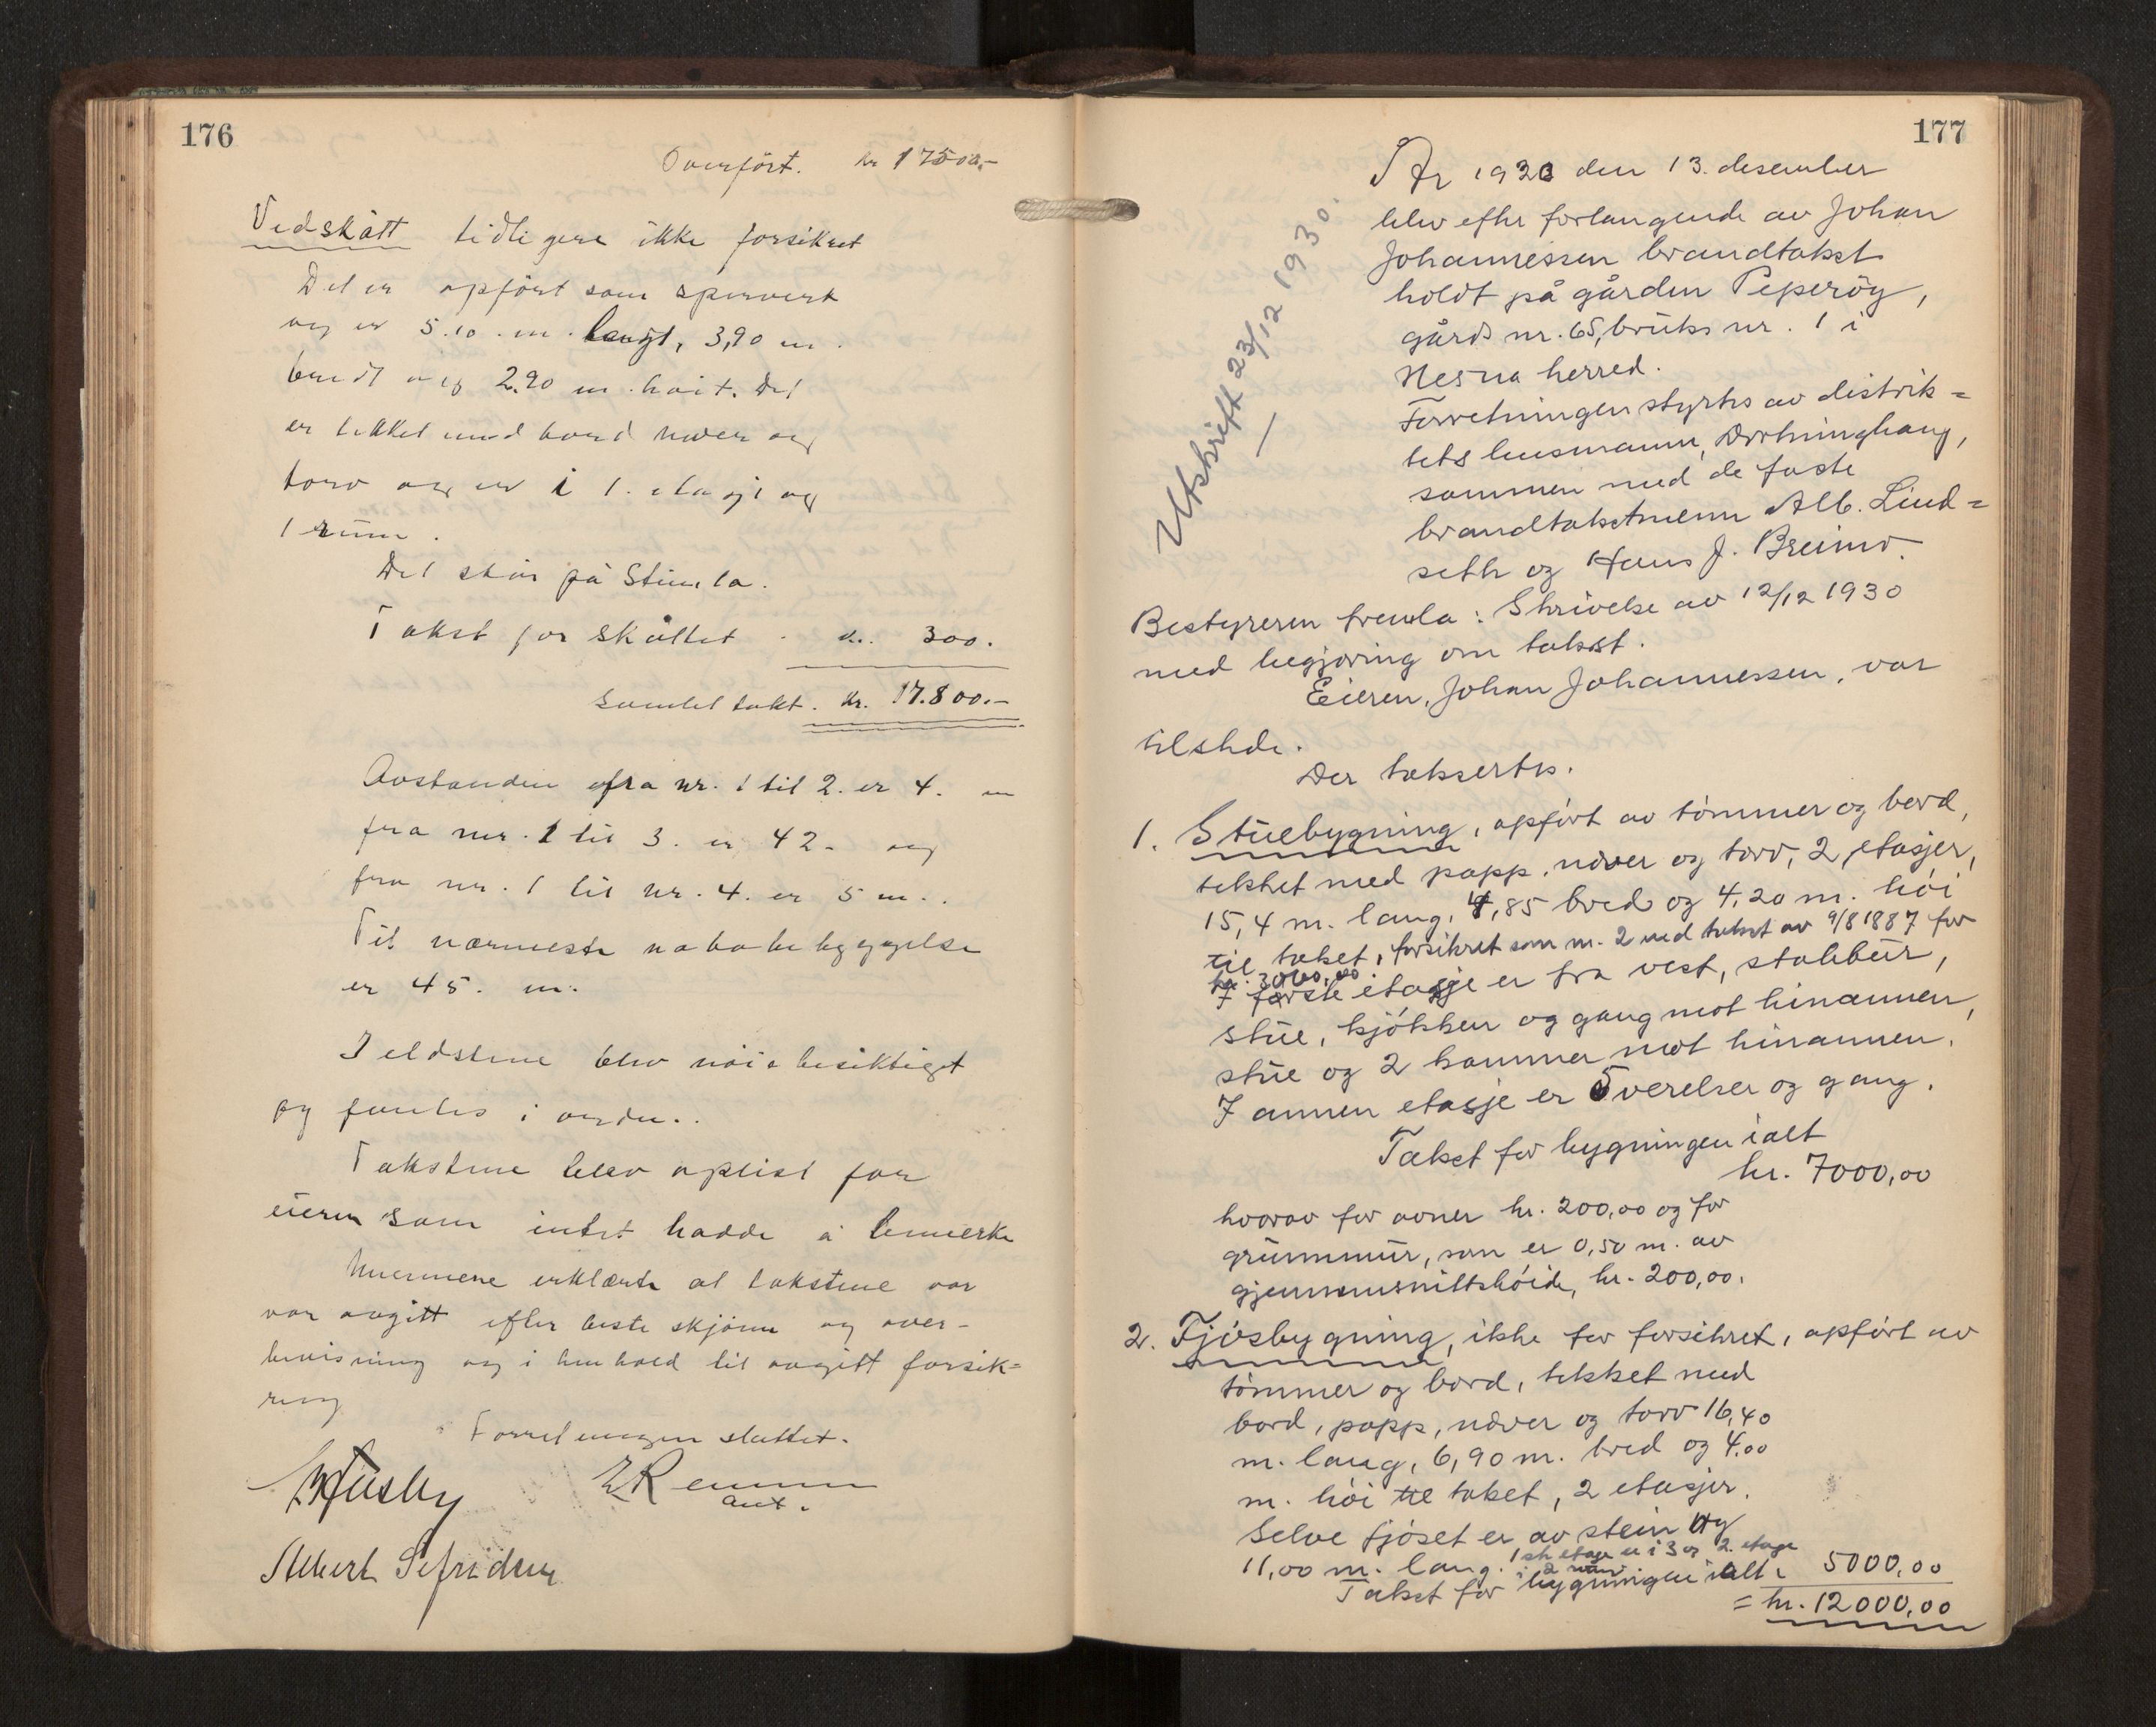 176
Overført. kr 17500.-
Vedskått tidligere ikke forsikret
Det er opført som spervert
og er 5.10 m. langt, 3,90 m.
bredt og 2.90 m. høit. Det
er tekket med bord næver og
torv og er i 1. etasje og
1 rum.
Det står på Stimla.
Takst for skåttet kr. 300.
Samlet takst. kr. 17.800.-
Avstanden fra nr. 1 til 2. er 4. m
fra nr. 1 til 3. er 42 - og
fra nr. 1 til nr. 4. er 5 m..
Til nærmeste nabobebyggelse
er 45. m.
Ildstene blev nøie besiktiget
og fantes i orden..
Takstene blev oplest for
eieren som intet hadde å bemerke
Mennene erklærte at takstene var
var avgitt efter beste skjønn og over-
bevisning og i henhold til avgitt forsik=
ring
Forretningen sluttet.
Husby ERemmen
ant.
Albert Sefridsen
177
År 1930 den 13. desember
blev efter forlangende av Johan
Johannessen brandtakst
holdt på gården Peperöy,
gårds nr. 65, bruks nr. 1 i
Nesna herred.
Forretningen styrtes av distrik=
tets lensmann, Drotninghaug,
sammen med de faste
brandtakstmenn Alb. Lind=
seth og Hans J. Breimo.
Utskrift 23/12 1930.
Bestyreren fremla: Skrivelse av 12/12 1930
med begjæring om takst.
Eieren, Johan Johannessen, var
tilstede.
Der taksertes.
1. Stuebygning, opført av tømmer og bord,
tekket med papp, næver og torv, 2 etasjer,
15,4 m. lang, 4,85 bred og 4,20 m. høi
til taket, forsikret som nr. 2 ved takst av 9/8 1887 for
kr. 3000,00.
I første etasje er fra vest, stabbur,
stue, kjøkken og gang mot hinannen,
stue og 2 kammer mot hinannen.
I annen etasje er 5 verelser og gang.
Takst for bygningen ialt
kr. 7000,00
hvorav for ovner kr. 200,00 og for
grunnmur, som er 0,50 m. av
gjennemsnittshøide, kr. 200,00.
2. Fjøsbygning, ikke før forsikret, opført av
tømmer og bord, tekket med
bord, papp, næver og torv 16,40
m. lang, 6,90 m. bred og 4,00
m. høi til taket, 2 etasjer.
Selve fjøset er av stein og
11,00 m. lang. 1ste etage er i 3 og 2. etage
i 2 rum.
Takst for bygningen ialt 5000,00
= kr. 12000,00